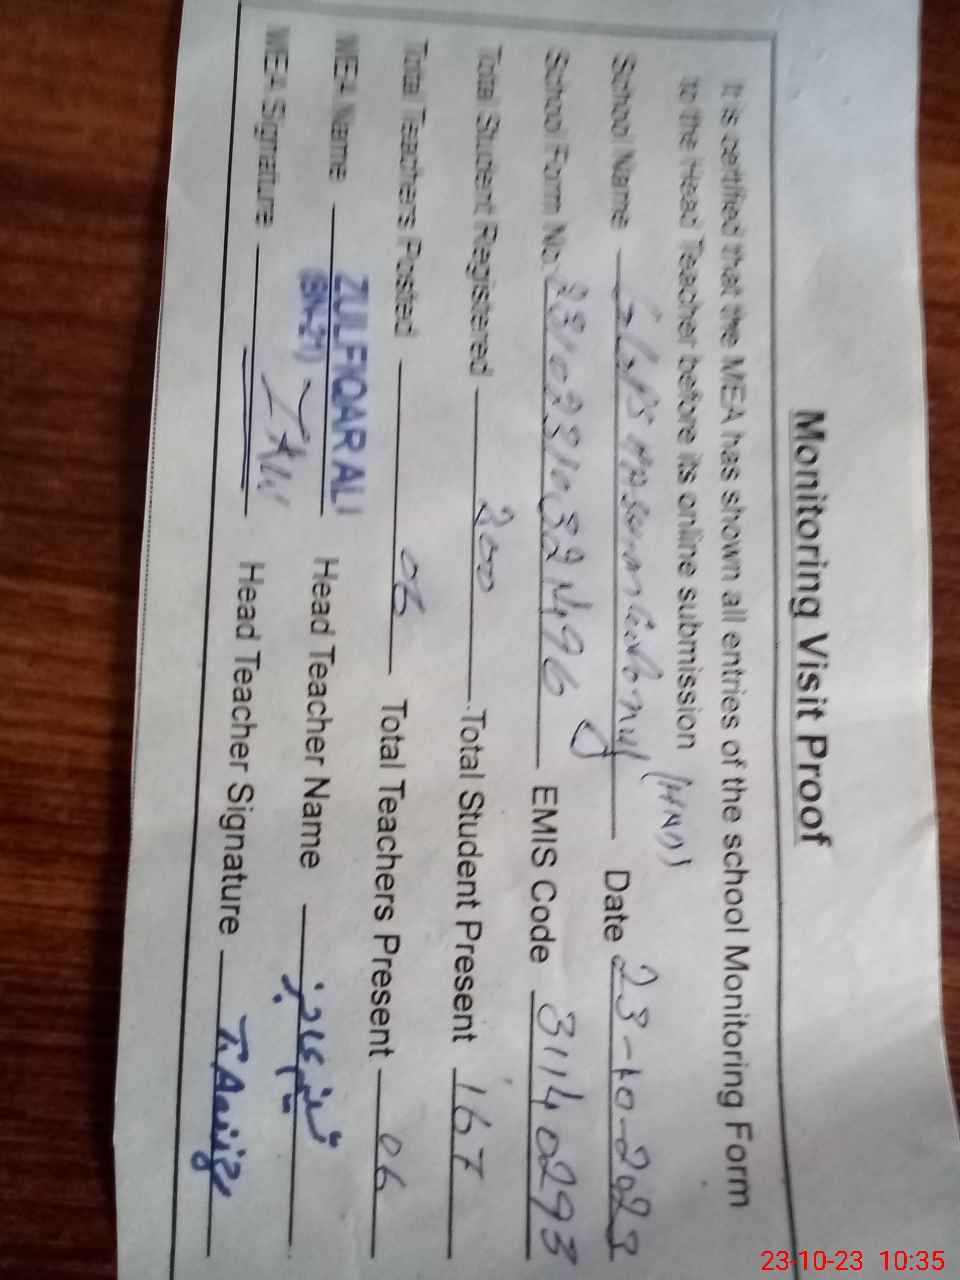 Monitoring Visit Proof
It is certified that the MEA has shown all entries of the school Monitoring Form
to the Head Teacher before its online submission
School Name Date 23-10-2023
School Form No. EMIS Code 31140293
Total Student Registered 200 Total Student Present 167
Total Teachers Posted 06 Total Teachers Present 06
MEA Name ZULFIQAR ALI Head Teacher Name
(BN-21)
MEA Signature Z Ali Head Teacher Signature
23-10-23 10:35